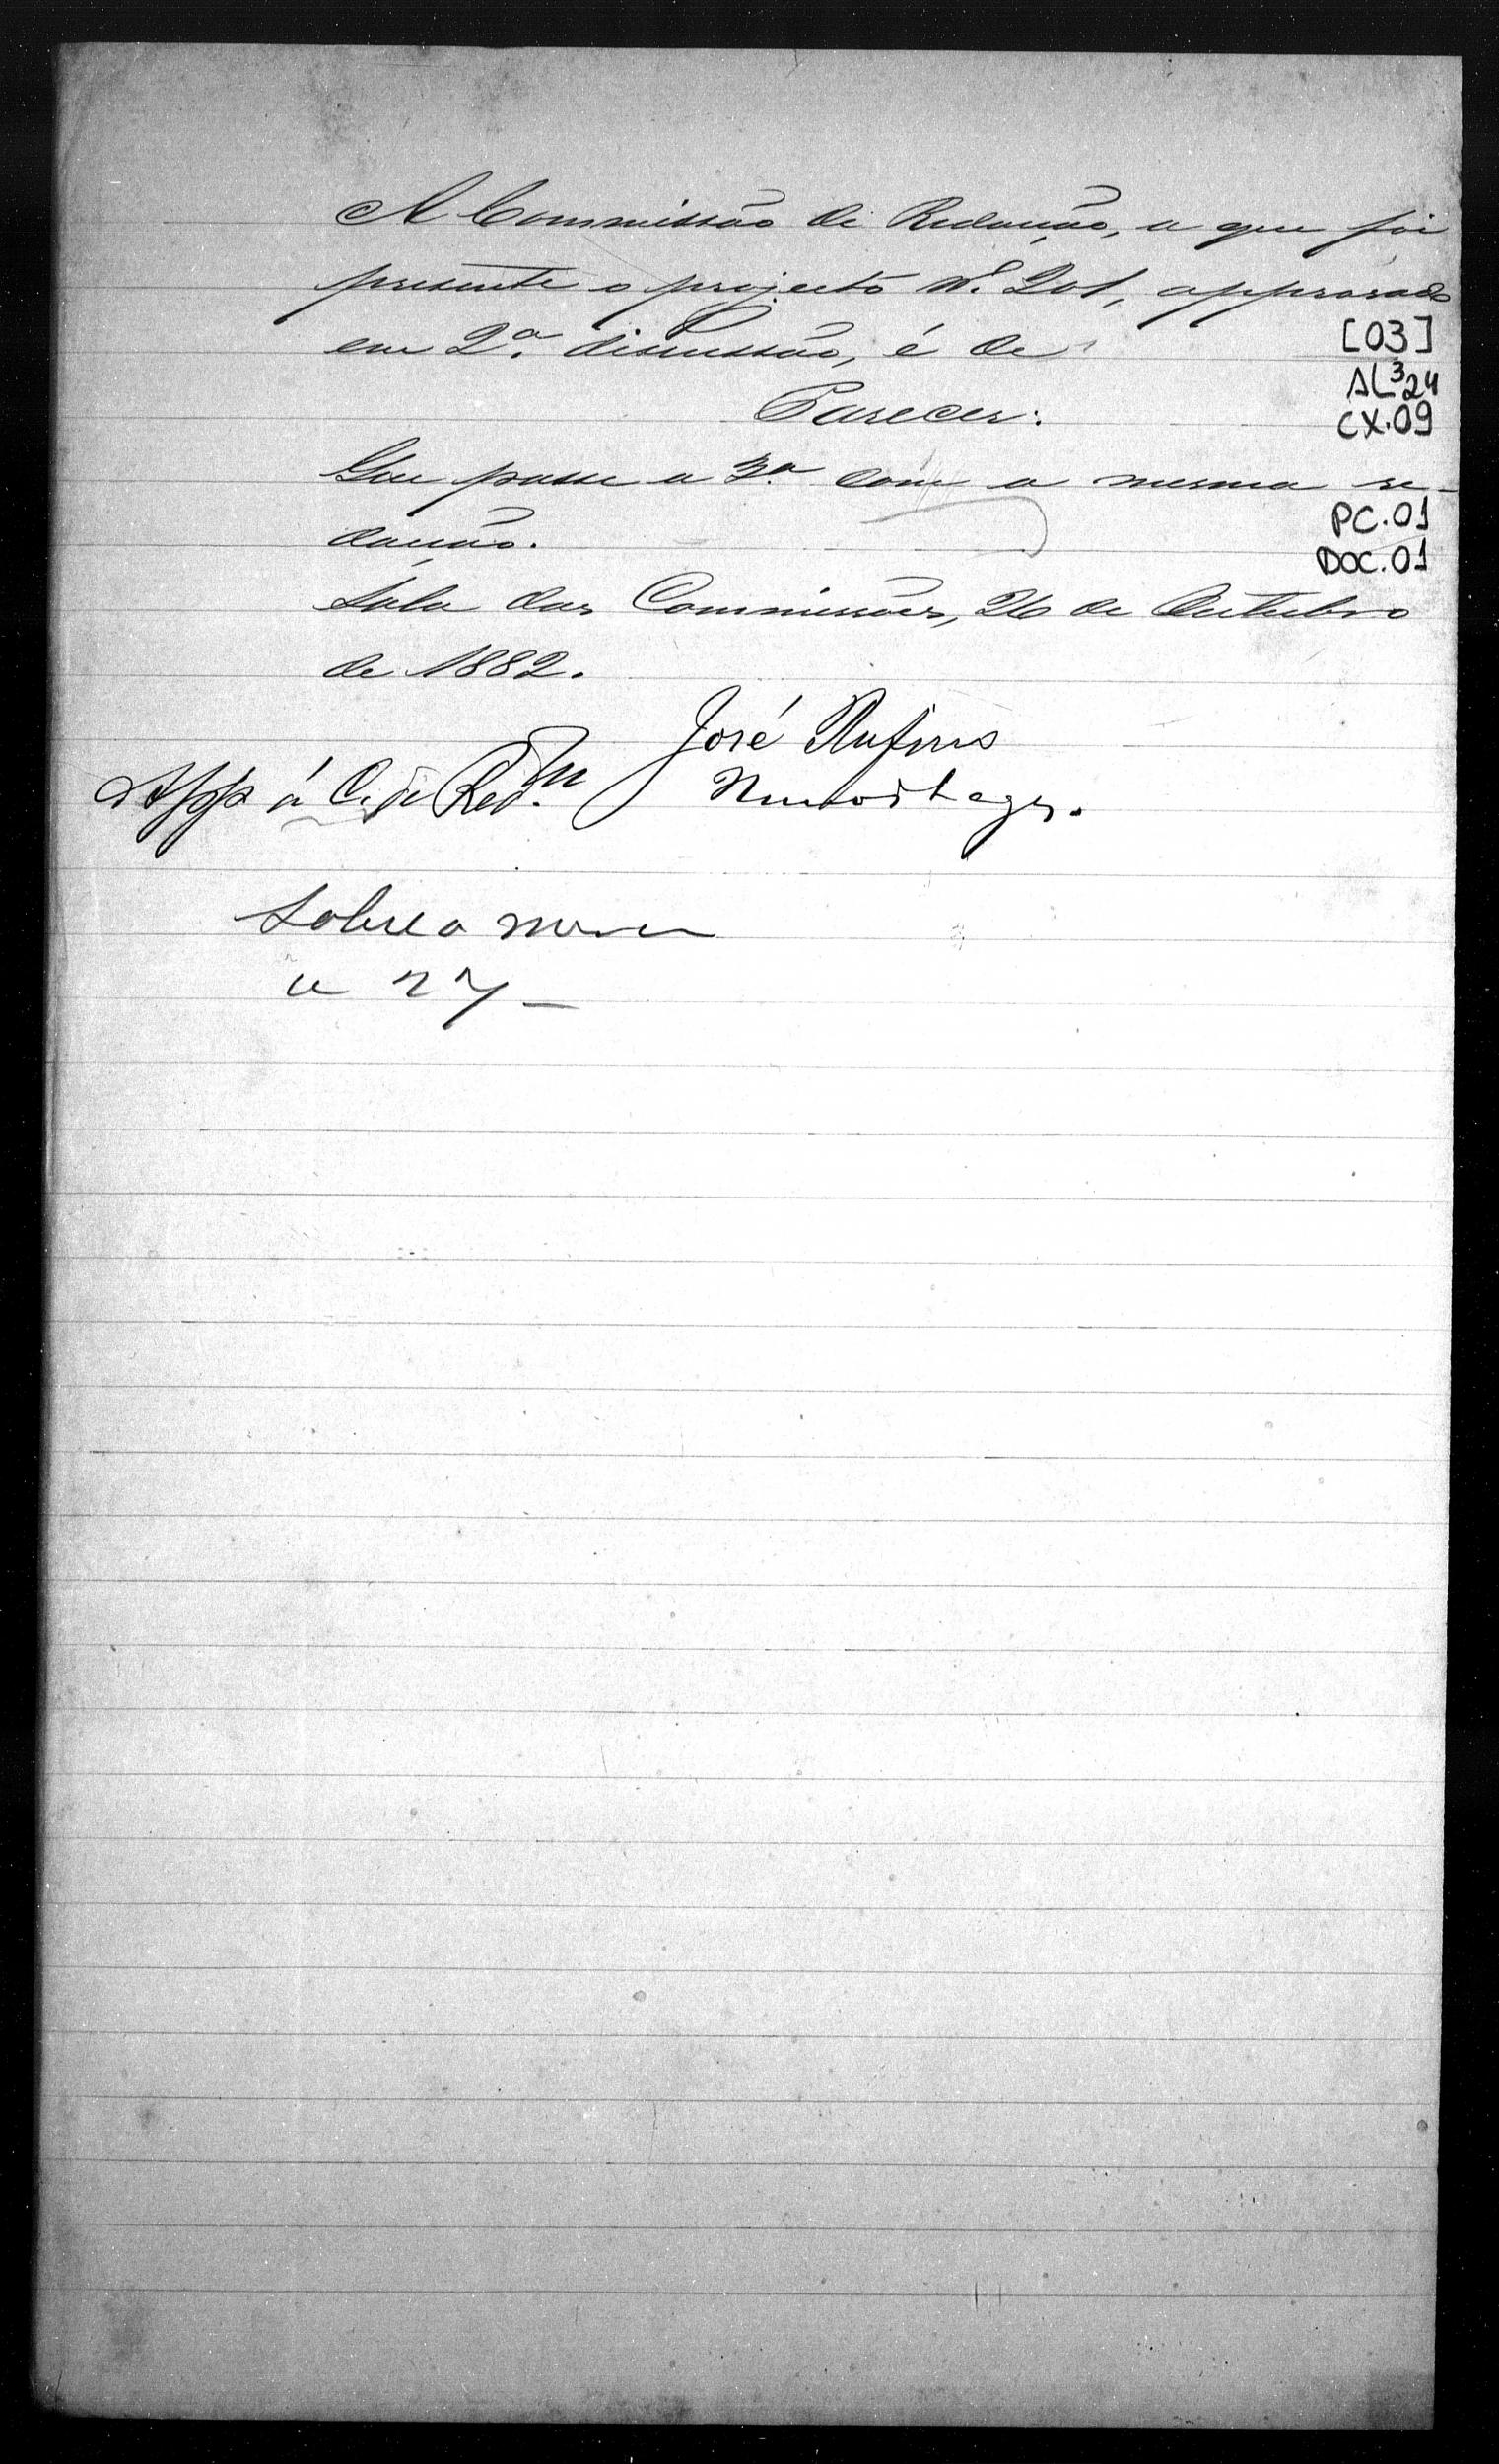 A Commissão de Redacção, a que foi
presente o projecto Nº. 201, approvado
em 2ª. discussão, é de
[03]
AL 3 24
CX.09
Parecer:
Que passe a 3ª com a mesma re-
dacção.
PC.01
DOC.01
Sala das Commissões, 26 de Outubro
de 1882.
José Rufino
App á C. de Red.
Sobre a mesa
a 27